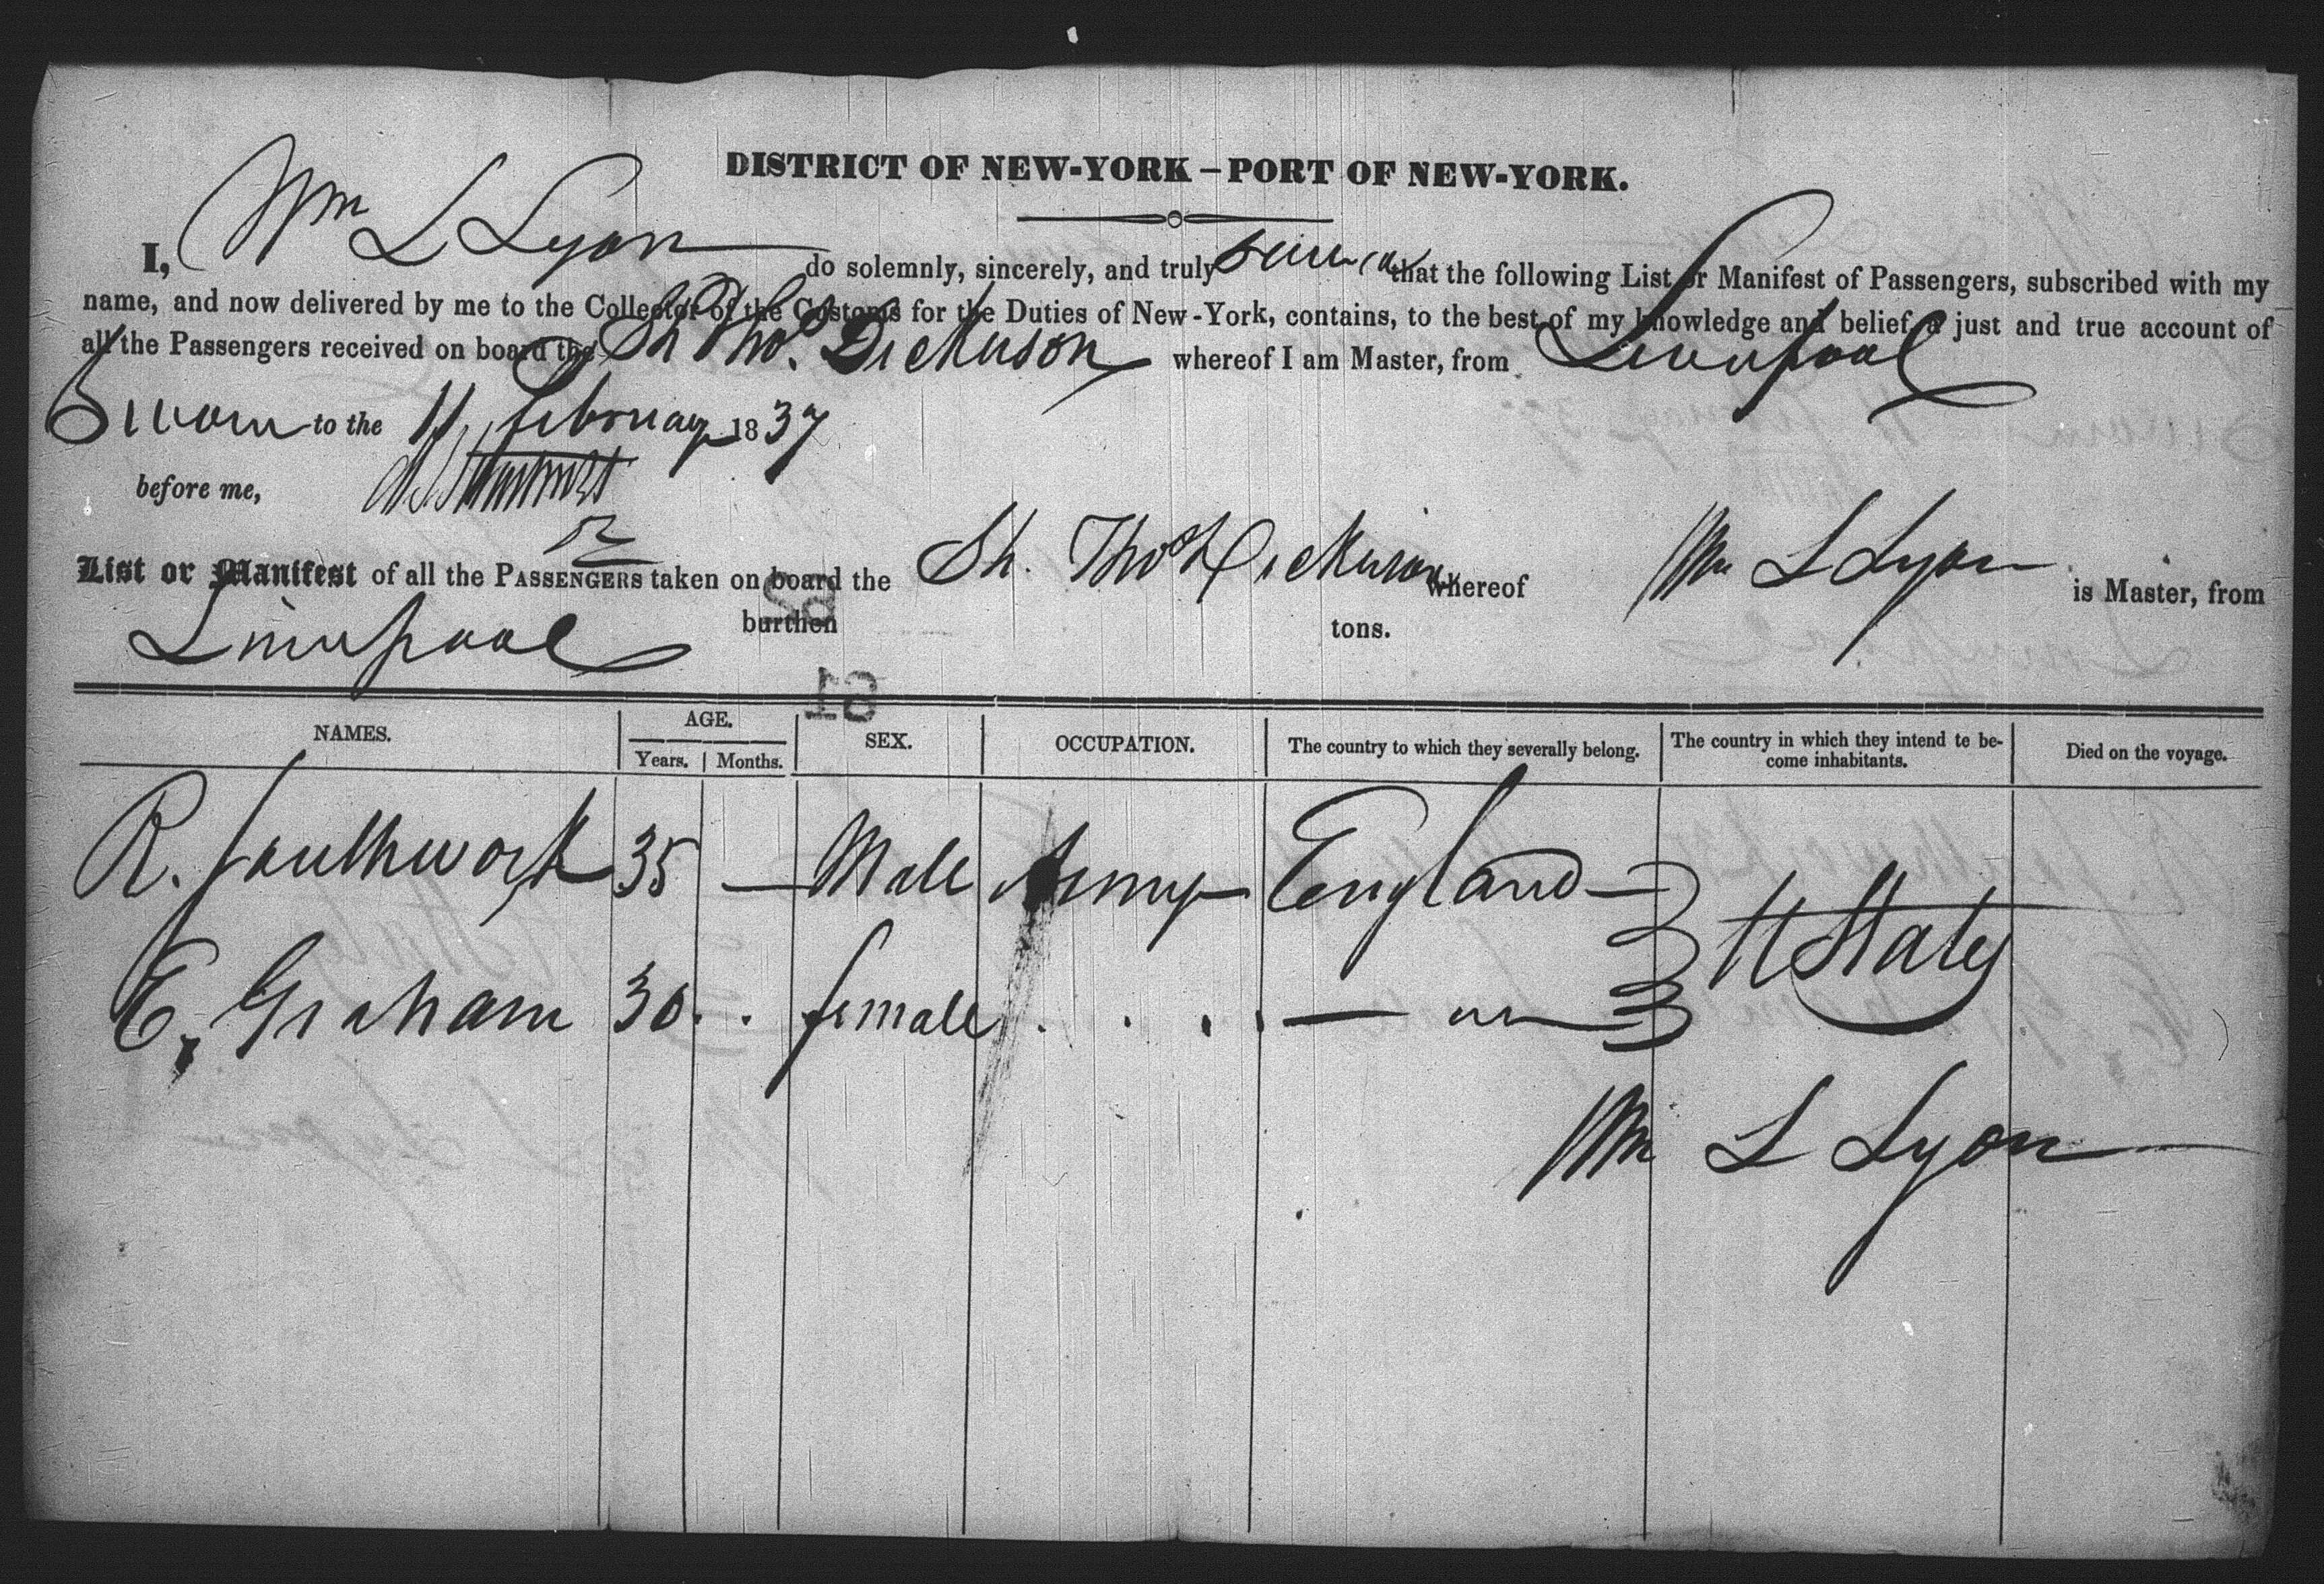 DISTRICT OF NEW-YORK – PORT OF NEW-YORK.
I, Wm L Lyon do solemnly, sincerely, and truly swear that the following List or Manifest of Passengers, subscribed with my
name, and now delivered by me to the Collector of the Customs for the Duties of New-York, contains, to the best of my knowledge and belief, a just and true account of
all the Passengers received on board the Sh Thos. Dickason whereof I am Master, from Liverpool
Sworn to the 11 February 1837
before me,
List or Manifest of all the PASSENGERS taken on board the Sh. Thos Dickason whereof Wm L Lyon is Master, from
Liverpool burthen tons.
NAMES. AGE. SEX. OCCUPATION. The country to which they severally belong. The country in which they intend te be-
come inhabitants. Died on the voyage.
Years. Months.
R. Southwork 35 — Male Army England
U States
E. Graham 30 . . female . . . . —
Wm L Lyon